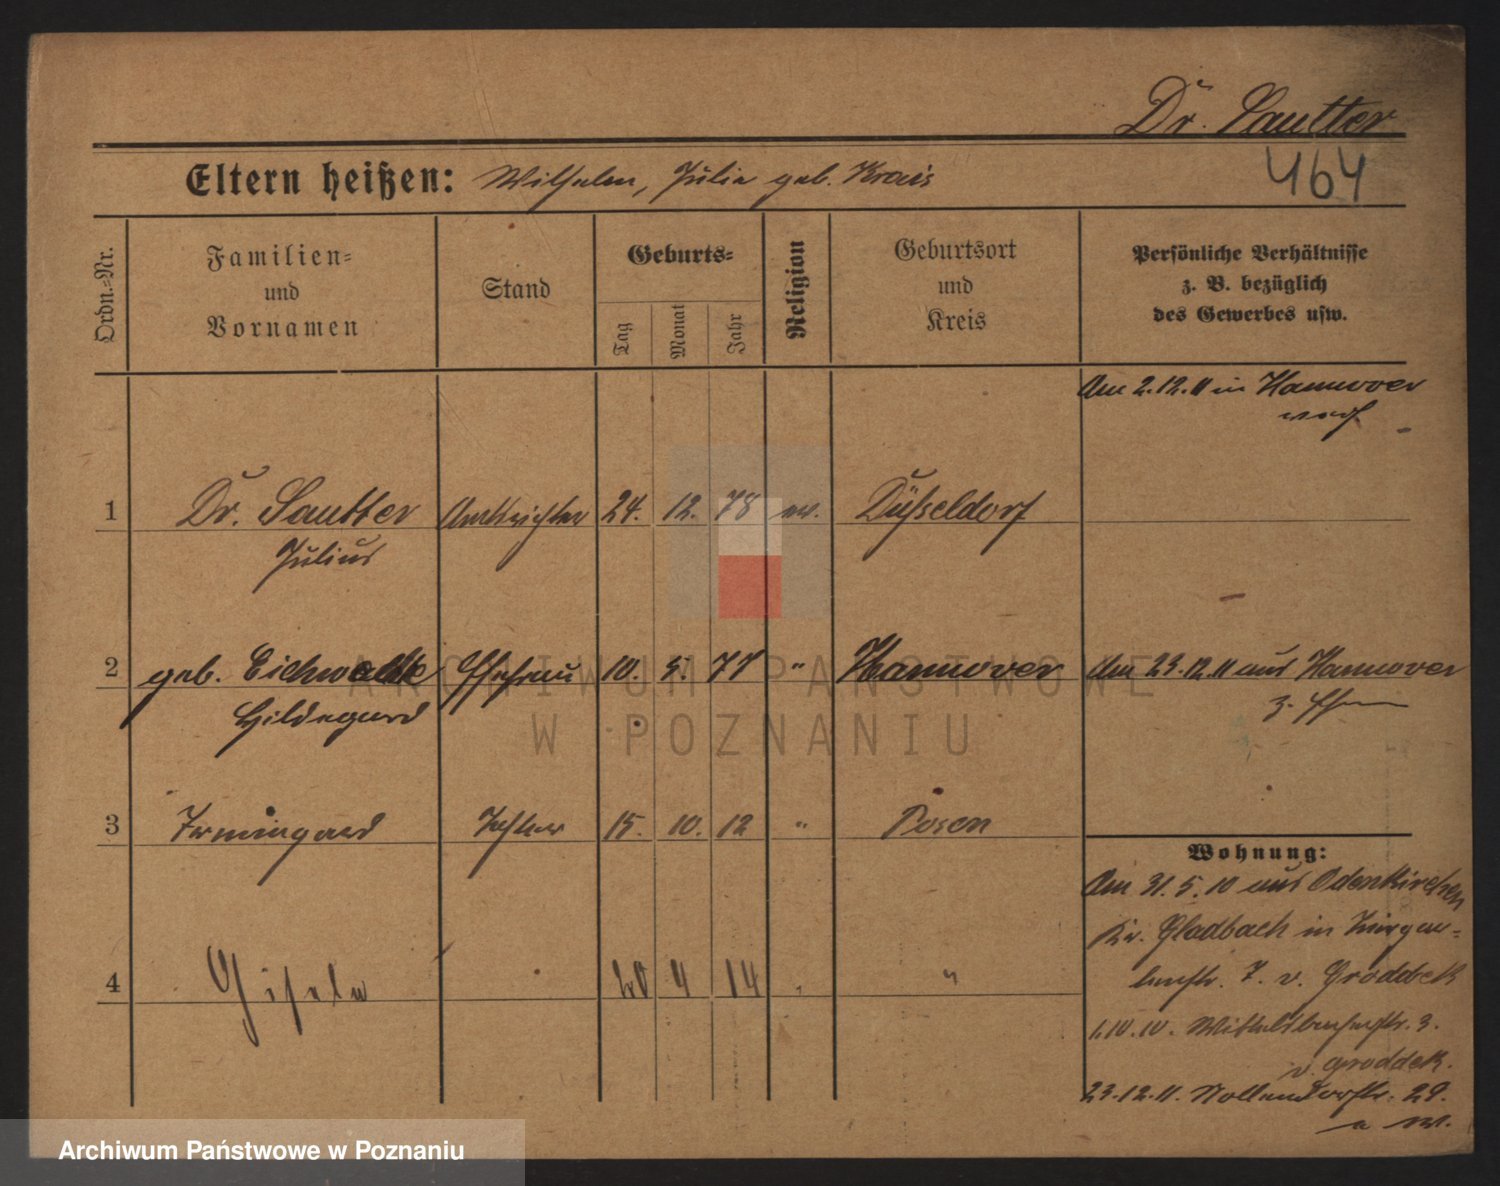 Dr. Sautter
464
Eltern heißen: Wilhelm, Julie geb. Krais
Ordn.-Nr.
Familien-
und
Vornamen
Stand
Geburts-
Tag
Monat
Jahr
Religion
Geburtsort
und
Kreis
Persönliche Verhältnisse
z. B. bezüglich
des Gewerbes usw.
Am 2.12.11 in Hannover
verh
1 Dr. Sautter Amtsrichter 24. 12. 78 ev. Düsseldorf
Julius
2 geb. Eichwede Ehefrau 10. 5. 77 " Hannover Am 23.12.11 aus Hannover
Hildegard z.
3 Irmingard Tochter 15. 10. 12 " Posen
Wohnung:
Am 31.5.10 aus Odenkirchen
Kr. Gladbach in
7. v. Groddeck
1.10.10. Wittelsbacherstr. 3.
v. Groddek.
23.12.11. Nollendorfstr. 29.
4 Gisela 20 4 14 " "
ARCHIWUM PAŃSTWOWE
W POZNANIU
Archiwum Państwowe w Poznaniu